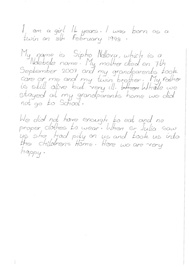 I am a girl 14 years. I was born as a
twin on 8th February 1994.
My name is Sipho Ndlovu, which is a
Ndebele name. My mother died on 7th
September 2007 and my grandparents took
care of me and my twin brother. My mother
is still alive but very ill. Whilst we
stayed at my grandparents home we did
not go to School.
We did not have enough to eat and no
proper clothes to wear. When Sr Julia saw
us she had pity on us and took us into
the children's home. Here we are very
happy.